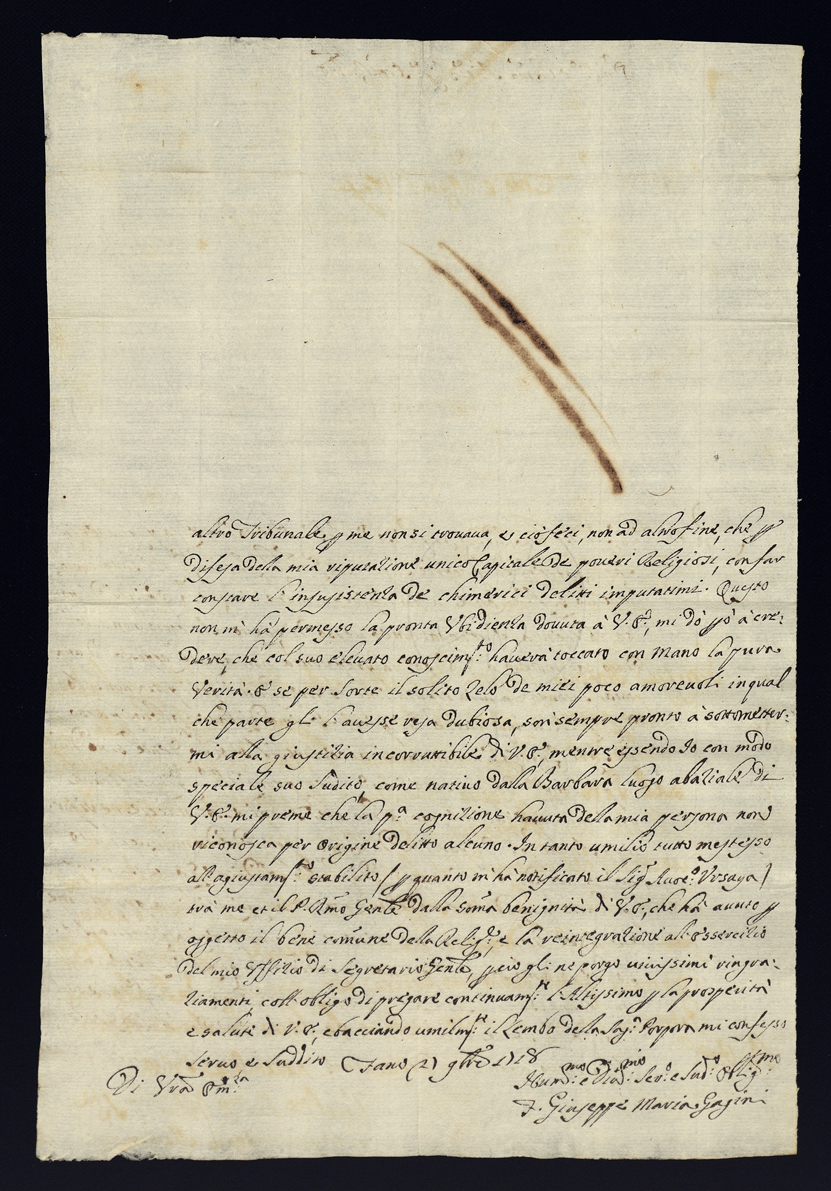 altro Tribunale p me non si trovava, e ciò feci, non ad altro fine, che p
difesa della mia riputazione unico Capitale de poveri Religiosi, con far
constare l'insusistenza de chimerici delitti imputatimi. Questo
non mi hà permesso la pronta Vbidienza dovuta à V. E., mi dò pò à cre:
dere, che col suo elevato conoscim:to haverà toccato con mano la pura
Verità. E se per sorte il solito Zelo de miei poco amorevoli in qual
che parte gli l'avesse resa dubiosa, son sempre pronto à sottometter:
mi alla giustitia incorruttibile di V. E., mentre essendo Io con modo
speciale suo Sudito, come nativo dalla Barbara luogo abaziale di
V. E. mi preme che la p.a cognitione havuta della mia persona non
riconosca per origine delitto alcuno. In tanto umilio tutto me stesso
all agiustam:to stabilito / p quanto m'hà notificato il Sig.r Avoc.o Vrsaya /
trà me et il P. Rmo Gente dalla soma benignità di V. E., che hà avuto p
oggetto il bene comune della Relig.e, e la reintegrazione all'essercitio
del mio Vffitio di Segretario Gente, p ciò gli ne porgo vivissimi ringra:
tiamenti, coll obligo di pregare continuam:te l'Altissimo p la prosperità
e salute di V. E., e bacciando umilm:te il Lembo della Sag. Porpora mi confesso
Servo, e Suddito Fano 21 9bre 1718
Di Vra Em:za
Hum:mo e Dio:mo Ser.o e Sud.o Oblig:mo
F. Giuseppe Maria Gagini